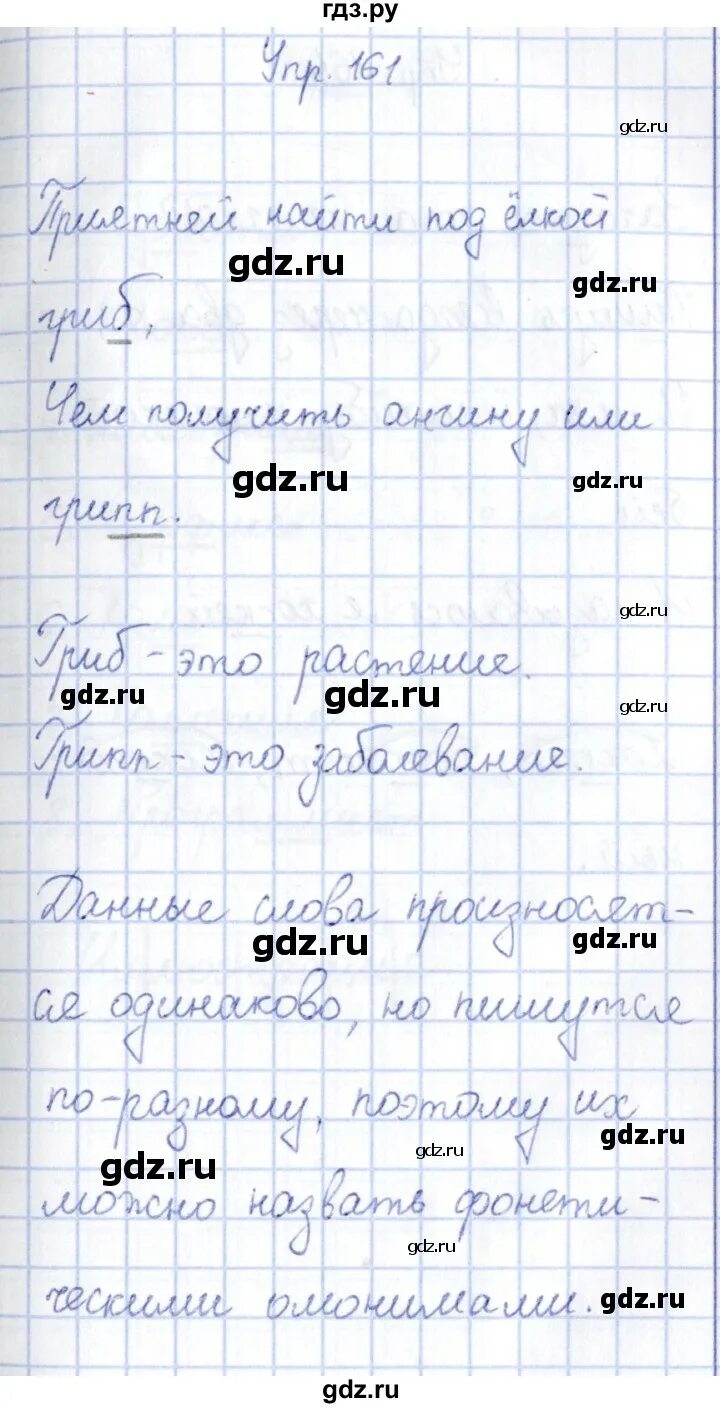 гдз.ру
Упр. 161
gdz.ru
Приятней найти под ёлкой
gdz.ru
gdz.ru
гриб,
Чем получить ангину или
gdz.ru
gdz.ru
грипп.
gdz.ru
Гриб - это растение.
gdz.ru
gdz.ru
gdz.ru
Грипп - это заболевание.
Данные слова произносят-
gdz.ru
gdz.ru
ся одинаково, но пишутся
по-разному, поэтому их
gdz.ru
gdz.ru
gdz.ru
можно назвать фонети-
gdz.ru
ческими омонимами.
gdz.ru
gdz.ru